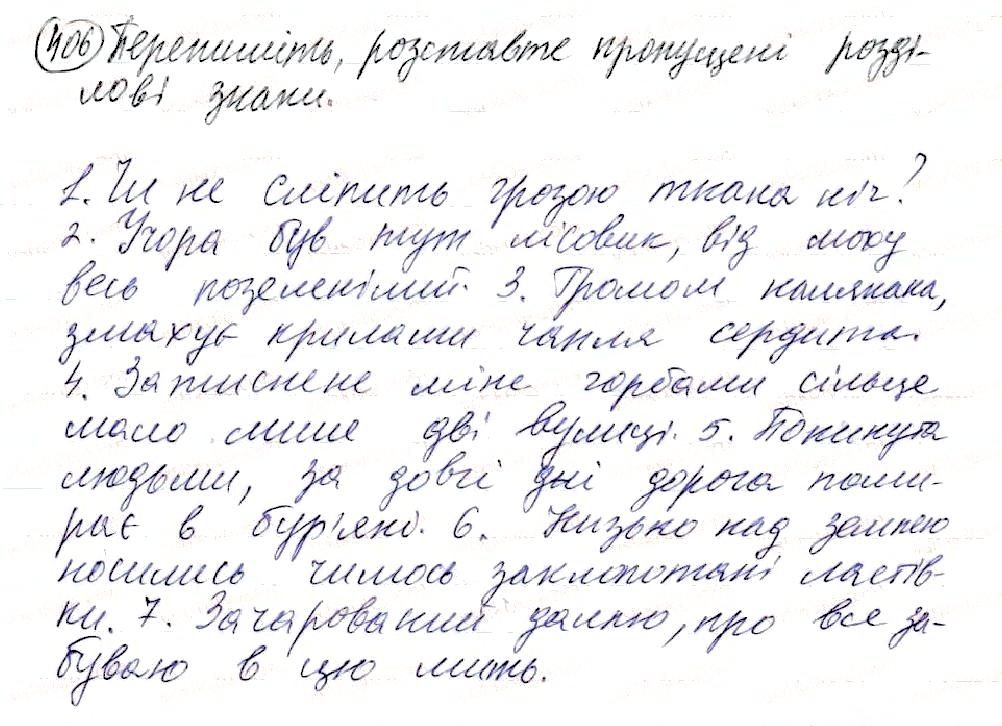 406 Перепишіть, розставте пропущені розді-
лові знаки.
1. Чи не сліпить грозою ткана ніч?
2. Учора був тут лісовик, від моху
весь позеленілий. 3. Громом налякана,
змахує крилами чапля сердита.
4. Затиснене між горбами сільце
мало лише дві вулиці. 5. Покинута
людьми, за довгі дні дорога поми-
рає в бур'яні. 6. Низько над землею
носились чимось заклопотані ластів-
ки. 7. Зачарований даллю, про все за-
буваю в цю мить.